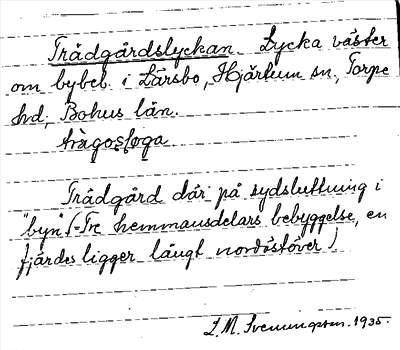 Trädgårdslyckan. Lycka väster
om bybeb. i Lärsbo, Hjärtum sn, Torpe
hd, Bohus län.
Trädgård där på sydsluttning i
"byn" (=Tre hemmansdelars bebyggelse, en
fjärdes ligger längt nordöstöver)
L. M. Svenungsson. 1935.